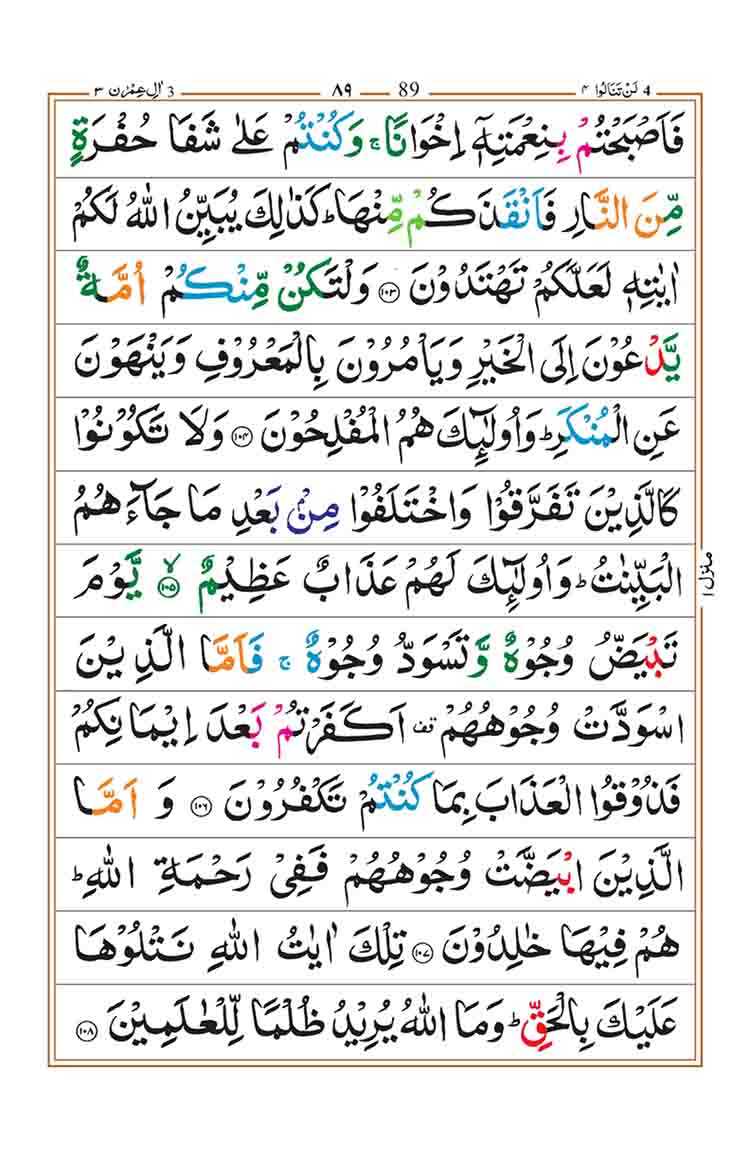 4 لَنْ تَنَالُوا ۴ 89 ۸۹ 3 اٰلِ عِمْرٰن ۳
فَاَصْبَحْتُمْ بِنِعْمَتِهٖۤ اِخْوَانًا ۚ وَكُنْتُمْ عَلٰی شَفَا حُفْرَةٍ
مِّنَ النَّارِ فَاَنْقَذَكُمْ مِّنْهَا ؕ كَذٰلِكَ یُبَیِّنُ اللّٰهُ لَكُمْ
اٰیٰتِهٖ لَعَلَّكُمْ تَهْتَدُوْنَ ۝۱۰۳ وَلْتَكُنْ مِّنْكُمْ اُمَّةٌ
یَّدْعُوْنَ اِلَی الْخَیْرِ وَیَاْمُرُوْنَ بِالْمَعْرُوْفِ وَیَنْهَوْنَ
عَنِ الْمُنْكَرِ ؕ وَاُولٰٓئِكَ هُمُ الْمُفْلِحُوْنَ ۝۱۰۴ وَلَا تَكُوْنُوْا
كَالَّذِیْنَ تَفَرَّقُوْا وَاخْتَلَفُوْا مِنْۢ بَعْدِ مَا جَآءَهُمُ
الْبَیِّنٰتُ ؕ وَاُولٰٓئِكَ لَهُمْ عَذَابٌ عَظِیْمٌ ۙ۝۱۰۵ یَّوْمَ
تَبْیَضُّ وُجُوْهٌ وَّتَسْوَدُّ وُجُوْهٌ ۚ فَاَمَّا الَّذِیْنَ
اسْوَدَّتْ وُجُوْهُهُمْ قف اَكَفَرْتُمْ بَعْدَ اِیْمَانِكُمْ
فَذُوْقُوا الْعَذَابَ بِمَا كُنْتُمْ تَكْفُرُوْنَ ۝۱۰۶ وَ اَمَّا
الَّذِیْنَ ابْیَضَّتْ وُجُوْهُهُمْ فَفِیْ رَحْمَةِ اللّٰهِ ؕ
هُمْ فِیْهَا خٰلِدُوْنَ ۝۱۰۷ تِلْكَ اٰیٰتُ اللّٰهِ نَتْلُوْهَا
عَلَیْكَ بِالْحَقِّ ؕ وَمَا اللّٰهُ یُرِیْدُ ظُلْمًا لِّلْعٰلَمِیْنَ ۝۱۰۸
منزل ۱